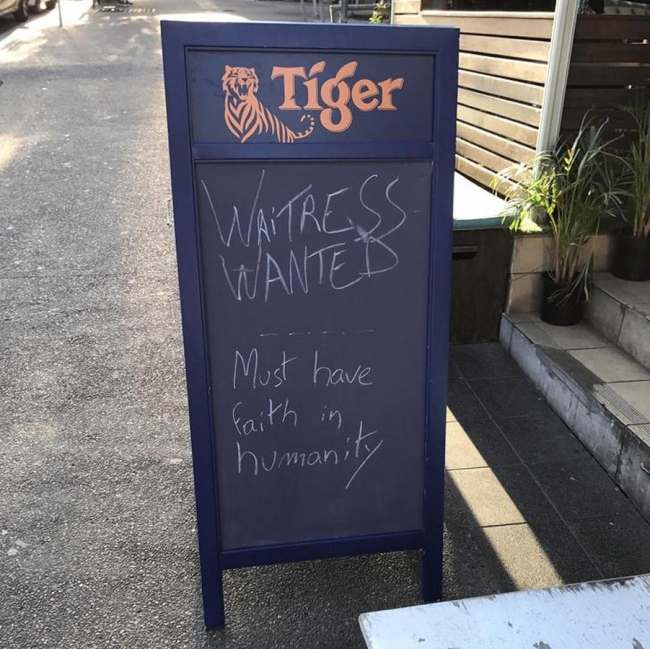 Tiger
WAiTRESS
WANTED
Must have
faith in
humanity